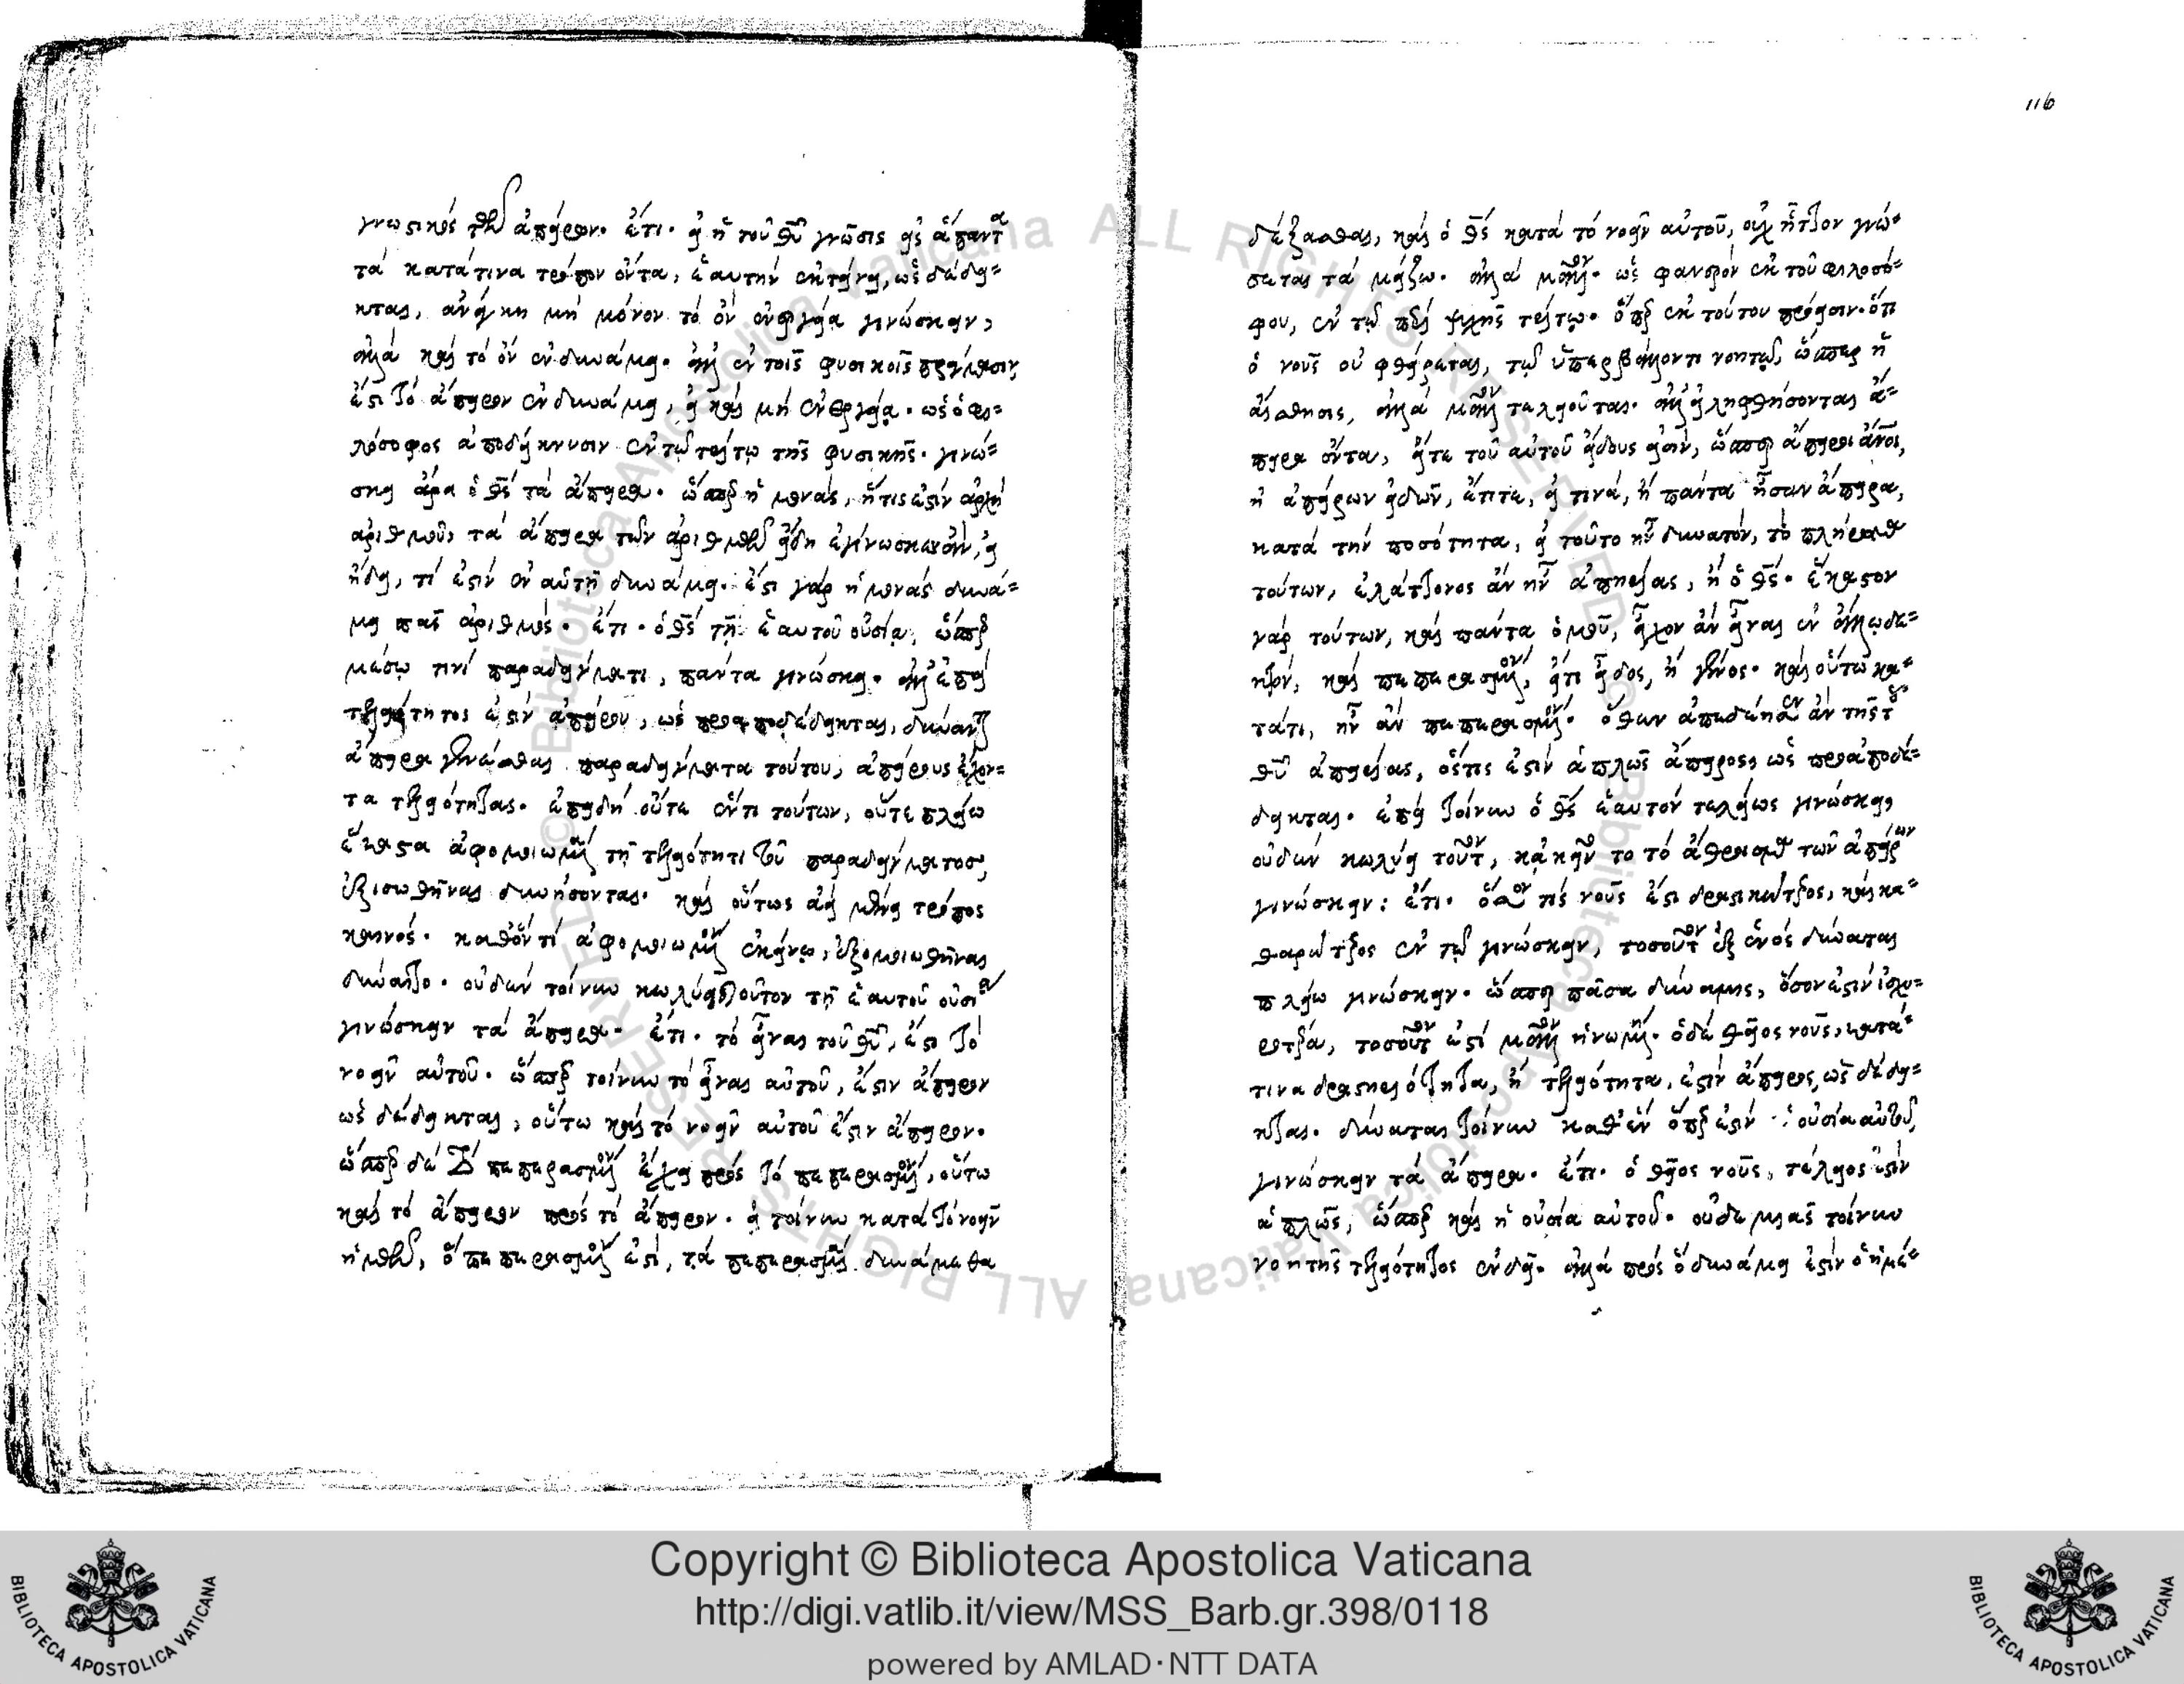 γνωστικός τῶν ἀπείρων. ἔτι. εἰ ἡ τοῦ θῦ γνῶσις εἰς ἅπαντα
τὰ κατά τινα τρόπον ὄντα, ἑαυτὴν ἐκτείνει, ὡς δέδει-
κται, ἀνάγκη μὴ μόνον τὸ ὂν ἐνεργείᾳ γινώσκειν,
ἀλλὰ καὶ τὸ ὂν ἐν δυνάμει. ἀλλ' ἐν τοῖς φυσικοῖς πράγμασιν
ἔστι τὸ ἄπειρον ἐν δυνάμει, εἰ καὶ μὴ ἐνεργείᾳ. ὡς ὁ φι-
λόσοφος ἀποδείκνυσιν ἐν τῷ τρίτῳ τῆς φυσικῆς. γινώ-
σκει ἄρα ὁ θς τὰ ἄπειρα. ὥσπερ ἡ μονὰς, ἥτις ἐστὶν ἀρχὴ
ἀριθμοῦ, τὰ ἄπειρα τῶν ἀριθμῶν εἴδη ἐγίνωσκεν ἂν, εἰ
ᾔδει, τί ἐστιν ἐν αὐτῇ δυνάμει. ἔστι γὰρ ἡ μονὰς δυνά-
μει πᾶς ἀριθμός. ἔτι. ὁ θς τῇ ἑαυτοῦ οὐσίᾳ, ὥσπερ
μέσῳ τινὶ παραδείγματι, πάντα γινώσκει. ἀλλ' ἐπεὶ
τελειότητος ἐστὶν ἀπείρου, ὡς προαποδέδεικται, δύναται
ἄπειρα γενέσθαι παραδείγματα τούτου, ἀπείρους ἔχον-
τα τελειότητας. ἐπειδὴ οὔτε ἕν τι τούτων, οὔτε πλείω
ἕκαστα ἀφομοιωμένα τῇ τελειότητι τοῦ παραδείγματος,
ἐξισωθῆναι δυνήσονται. καὶ οὕτως ἀεὶ μένει τρόπος
καινός. καθ' ὅν τι ἀφομοιωμένον ἐκείνῳ, ἐξομοιωθῆναι
δύναιτο. οὐδὲν τοίνυν κωλύει τοῦτον τῇ ἑαυτοῦ οὐσίᾳ
γινώσκειν τὰ ἄπειρα. ἔτι. τὸ εἶναι τοῦ θῦ, ἔστι τὸ
νοεῖν αὐτοῦ. ὥσπερ τοίνυν τὸ εἶναι αὐτοῦ, ἔστιν ἄπειρον
ὡς δέδεικται, οὕτω καὶ τὸ νοεῖν αὐτοῦ ἔστιν ἄπειρον.
ὥσπερ δὲ τὸ πεπερασμένον ἔχει πρὸς τὸ πεπερασμένον, οὕτω
καὶ τὸ ἄπειρον πρὸς τὸ ἄπειρον. εἰ τοίνυν κατὰ τὸ νοεῖν
ἡμῶν, ὃ πεπερασμένον ἐστὶ, τὰ πεπερασμένα δυνάμεθα
116
δέξασθαι, καὶ ὁ θς κατὰ τὸ νοεῖν αὐτοῦ, οὐχ ἧττον γνώ-
σεται τὰ μείζω. ἀλλὰ μᾶλλον. ὡς φανερὸν ἐκ τοῦ φιλοσό-
φου, ἐν τῷ περὶ ψυχῆς τρίτῳ. ὅπερ ἐκ τούτου πρόεισιν. ὅτι
ὁ νοῦς οὐ φθείρεται, τῷ ὑπερβάλλοντι νοητῷ, ὥσπερ ἡ
αἴσθησις, ἀλλὰ μᾶλλον τελειοῦται. ἀλλ' εἰ ληφθήσονται ἄ-
πειρα ὄντα, εἴτε τοῦ αὐτοῦ εἴδους εἰσὶν, ὥσπερ ἄπειροι ἄνοι,
ἢ ἀπείρων εἰδῶν, ἔπιτε, εἴ τινά, ἢ πάντα ἦσαν ἄπειρα,
κατὰ τὴν ποσότητα, εἰ τοῦτο ἦν δυνατόν, τὸ πλήρωμα
τούτων, ἐλάττονος ἂν ἦν ἀπειρίας, ἢ ὁ θς. ἕκαστον
γὰρ τούτων, καὶ πάντα ὁμοῦ, εἶχον ἂν εἶναι ἐν
καὶ πεπερασμένον, ἔτι εἶδος, ἢ γένος. καὶ οὕτω κα-
τά τι, ἦν ἂν πεπερασμένον. ὅθεν ἀπεδέησεν ἂν τῆς τοῦ
θῦ ἀπειρίας, ὅστις ἐστὶν ἁπλῶς ἄπειρος, ὡς προαποδέ-
δεικται. ἐπεὶ τοίνυν ὁ θς ἑαυτὸν τελείως γινώσκει,
οὐδὲν κωλύει τοῦτον, κἀκεῖνο τὸ τὸ ἄθροισμα τῶν ἀπείρων
γινώσκειν: ἔτι. ὅσον τις νοῦς ἐστι δραστικώτερος, καὶ κα-
θαρώτερος ἐν τῷ γινώσκειν, τοσοῦτον ἐξ ἑνὸς δύναται
πλείω γινώσκειν. ὥσπερ πᾶσα δύναμις, ὅσον ἐστὶν ἰσχυ-
ροτέρα, τοσοῦτον ἐστὶ μᾶλλον ἡνωμένη. ὁ δὲ θεῖος νοῦς, κατά
τινα δραστικότητα, ἢ τελειότητα, ἐστὶν ἄπειρος, ὡς δέδει-
κται. δύναται τοίνυν καθ' ἓν ὅπερ ἐστὶν ἡ οὐσία αὐτοῦ,
γινώσκειν τὰ ἄπειρα. ἔτι. ὁ θεῖος νοῦς, τέλειος ἐστὶν
ἁπλῶς, ὥσπερ καὶ ἡ οὐσία αὐτοῦ. οὐδεμιᾶς τοίνυν
νοητῆς τελειότητος ἐνδεῖ. ἀλλὰ πρὸς ὃ δυνάμει ἐστὶν ὁ ἡμέ-
Copyright © Biblioteca Apostolica Vaticana
http://digi.vatlib.it/view/MSS_Barb.gr.398/0118
powered by AMLAD·NTT DATA
BIBLIOTECA APOSTOLICA VATICANA
BIBLIOTECA APOSTOLICA VATICANA